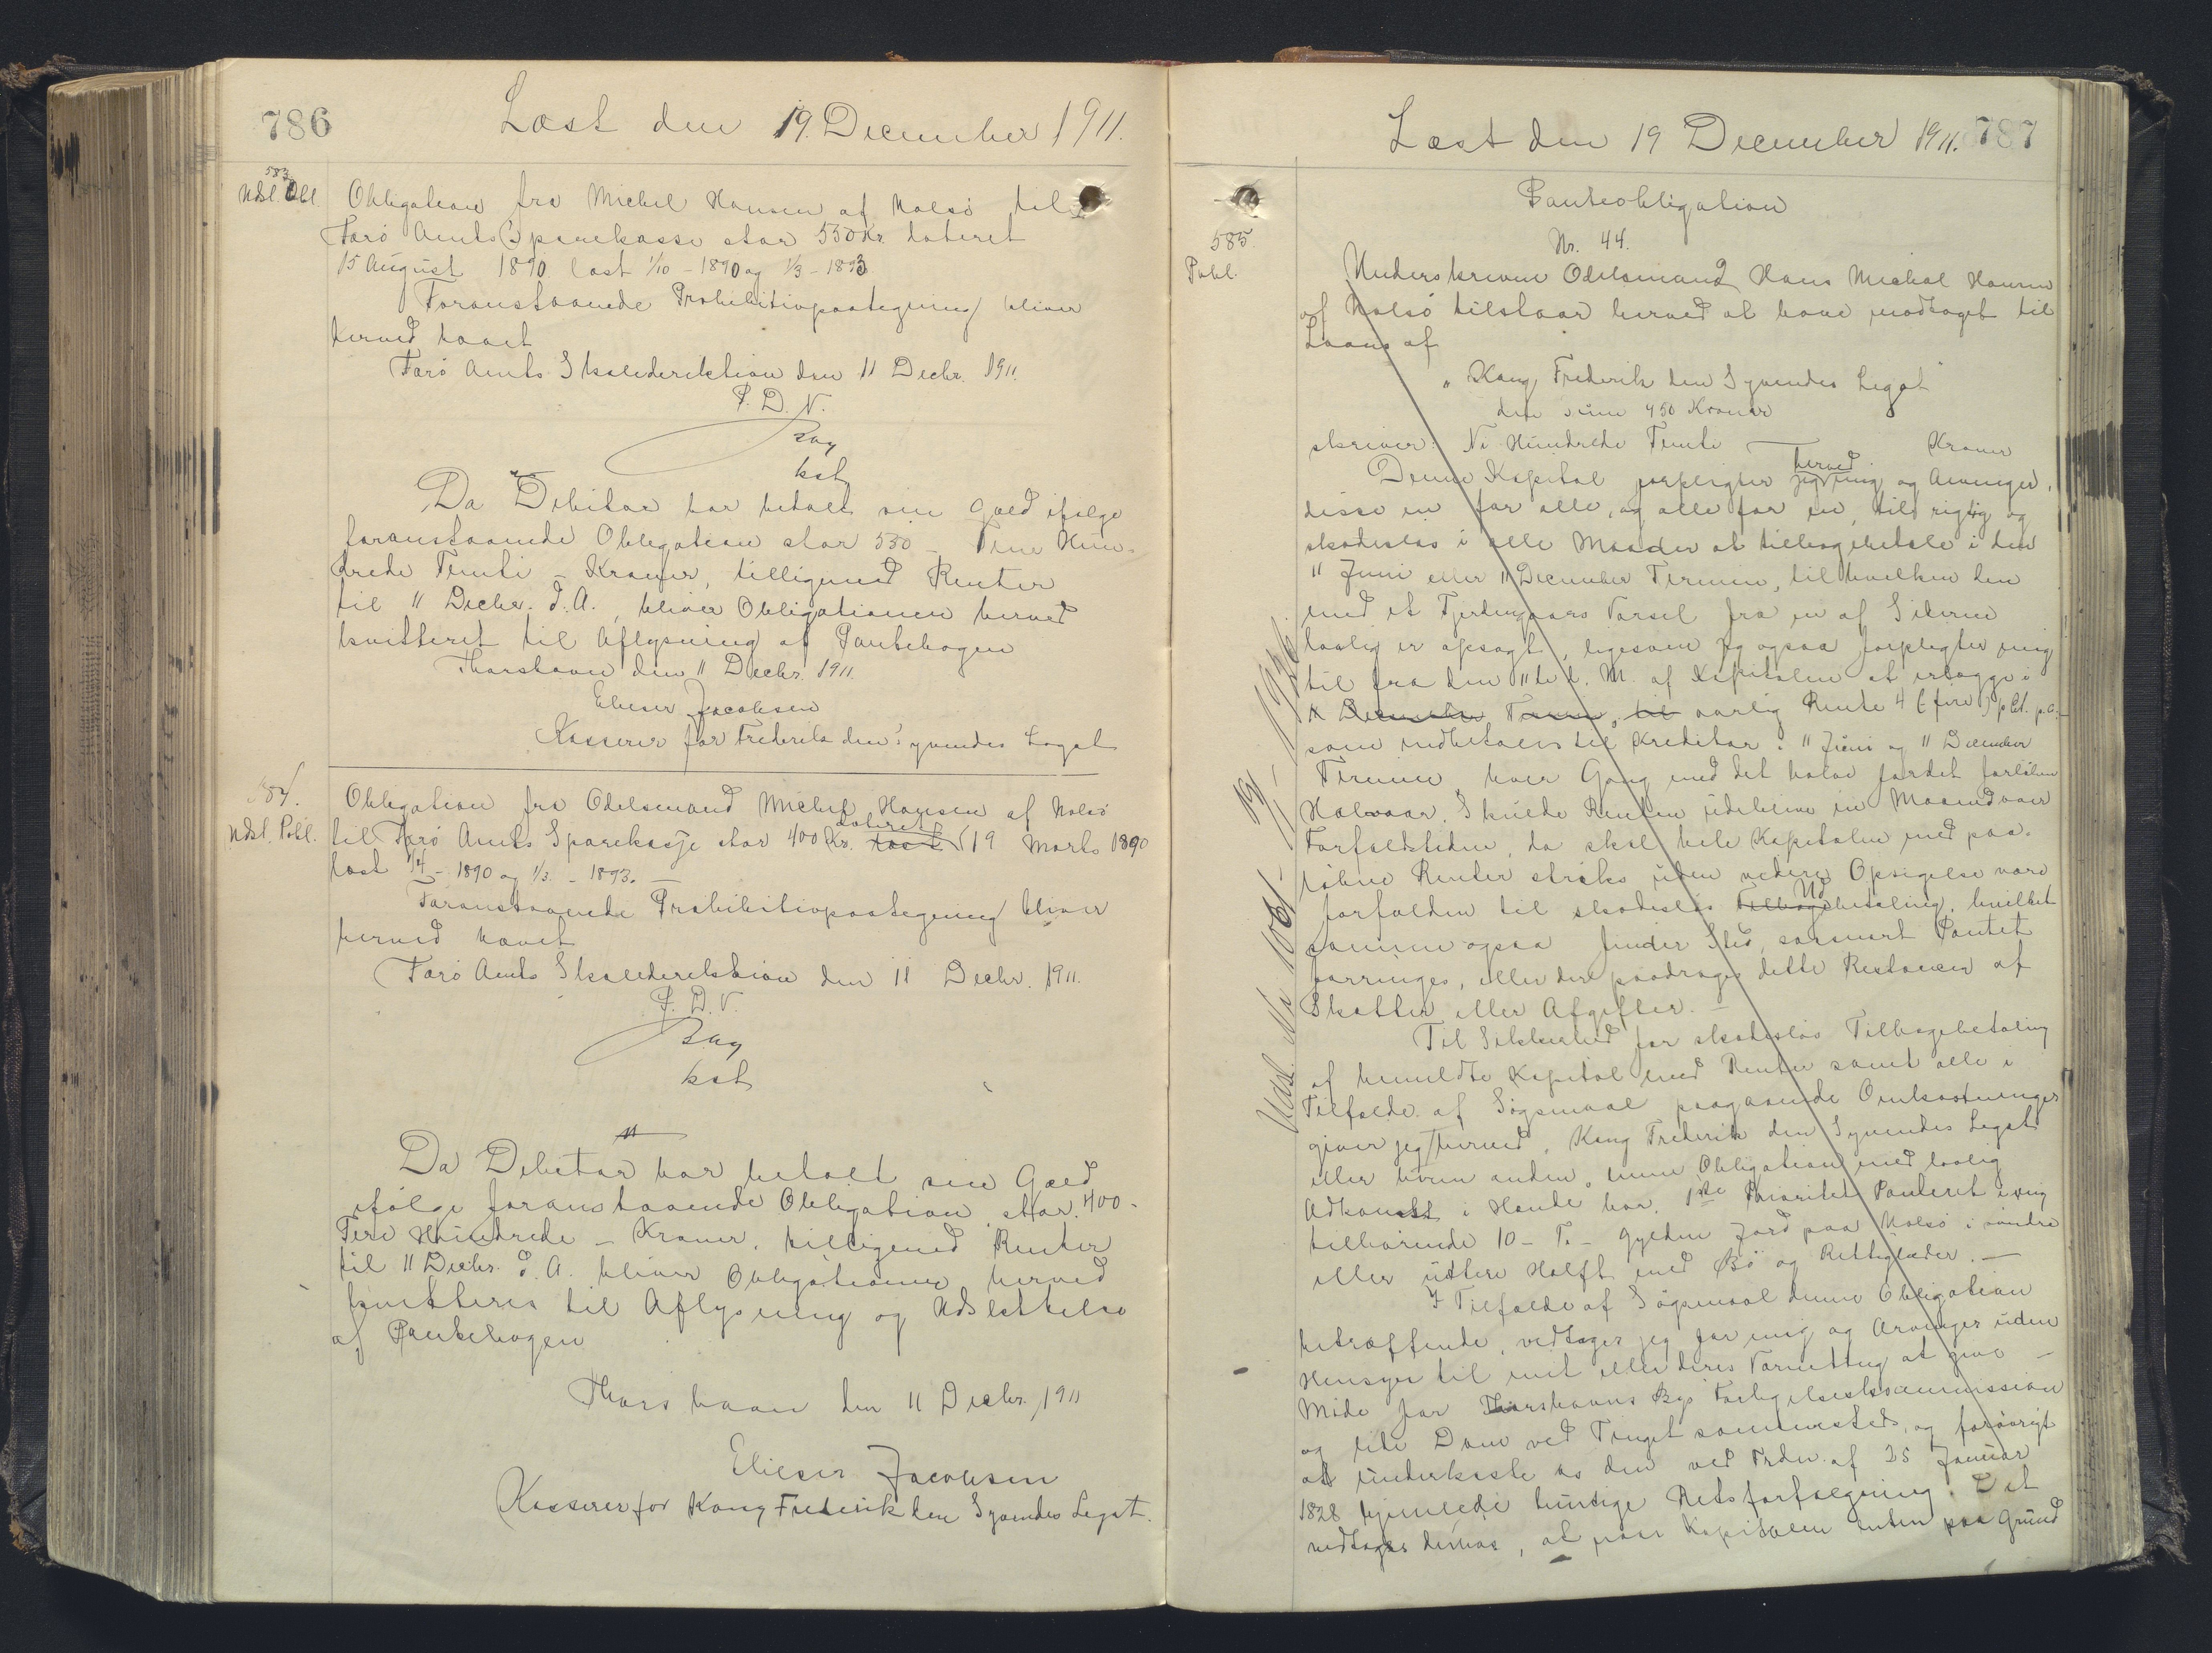 786
Læst den 19. December 1911.
583
Udsl. Obl.
Obligation fra Michel Hansen af Nolsö til
Færö Amts Sparekasse stor 550 Kr. dateret
15 August 1890 læst 1/10 - 1890 og 1/3 - 1893
Foranstaaende Prohibitivpaategning bliver
herved hævet
Færö Amts Skoledirektion den 11 Decbr. 1911.
P. D. V.
Bay
kst
Da Debitor har betalt sin Gæld ifølge
foranstaaende Obligation stor 550 - Fem Hun-
drede Femti - Kroner, tilligemed Renter
til 11 Decbr. d. A., bliver Obligationen herved
kvitteret til Aflysning af Pantebogen
Thorshavn den 11 Decbr. 1911.
Elieser Jacobsen
Kasserer for Frederik den Syvendes Legat
584.
Udsl. Pobl.
Obligation fra Odelsmand Michel Hansen af Nolsö
til Færö Amts Sparekasse stor 400 Kr. læst dateret 19 Marts 1890
læst 1/4 - 1890 og 1/3 - 1893. -
Foranstaaende Prohibitivpaategning bliver
herved hævet
Færö Amts Skoledirektion den 11 Decbr. 1911.
P. D. V.
Bay
kst
Da Debitor har betalt sin Gæld
ifølge foranstaaende Obligation stor 400 -
Fire Hundrede - Kroner, tilligemed Renter
til 11 Decbr. d. A. bliver Obligationen herved
kvitteres til Aflysning og Udslettelse
af Pantebogen
Thorshavn den 11 Decbr. 1911
Elieser Jacobsen
Kasserer for Kong Frederik den Syvendes Legat.
Læst den 19 December 1911. 787
585.
Pobl.
Panteobligation
Nr. 44.
Underskrevne Odelsmand Hans Michal Hansen
af Nolsö tilstaar herved at have modtaget til
Laans af
"Kong Frederik den Syvendes Legat"
den sum 950 Kroner
skriver: Ni Hundrede Femti Kroner
Denne Kapital forpligter jeg herved mig og Arvinger,
disse en for alle, og alle for en, til rigtig og
skadeslös i alle Maader at tilbagebetale i den
11 Juni eller 11 December Termin, til hvilken den
med et Fjerdingaars Varsel fra en af Siderne
lovlig er opsagt, ligesom jeg ogsaa forpligter mig
til fra den 11te d. M. af Kapitalen at erlægge i
December Termin, til aarlig Rente 4 (fire) pCt. p. a.-
som indbetales til Kreditor i 11 Juni og 11 December
Termin hver Gang med det halve for det forløbne
Halvaar. Skulde Renten udeblive en Maaned over
Forfaldstiden, da skal hele Kapitalen med paa-
løbne Renter straks uden videre Opsigelse være
forfalden til skadeslös Tilbage Ud betaling, hvilket
samme ogsaa finder Sted, saasnart Pantet
forringes, eller der paadrages dette Restancer af
Skatter eller Afgifter. -
Til Sikkerhed for skadeslös Tilbagebetaling
af bemeldte Kapital med Renter samt alle i
Tilfælde af Søgsmaal paagaaende Omkostninger
giver jeg herved, Kong Frederik den Syvendes Legat
eller hvem anden, denne Obligation med lovlig
Adkomst i Hænde har, 1ste Prioritet Panteret i mig
tilhørende 10 - Ti - Gylden Jord paa Nolsö i søndre
eller ydtere Halft med Bö og Rettigheder. -
I Tilfælde af Søgsmaal denne Obligation
betræffende, vedtager jeg for mig og Arvinger uden
Hensyn til mit eller deres Værneting at give
Möde for Thorshavns Bys Forligelseskommission
og lide Dom ved Tinget sammesteds, og forøvrigt
at underkaste os den ved Frdn. af 25 Januar
1828 hjemlede hurtige Retsforfølgning. Det
vedtages derhos, at naar Kapitalen enten paa Grund
Udsl. No 1081